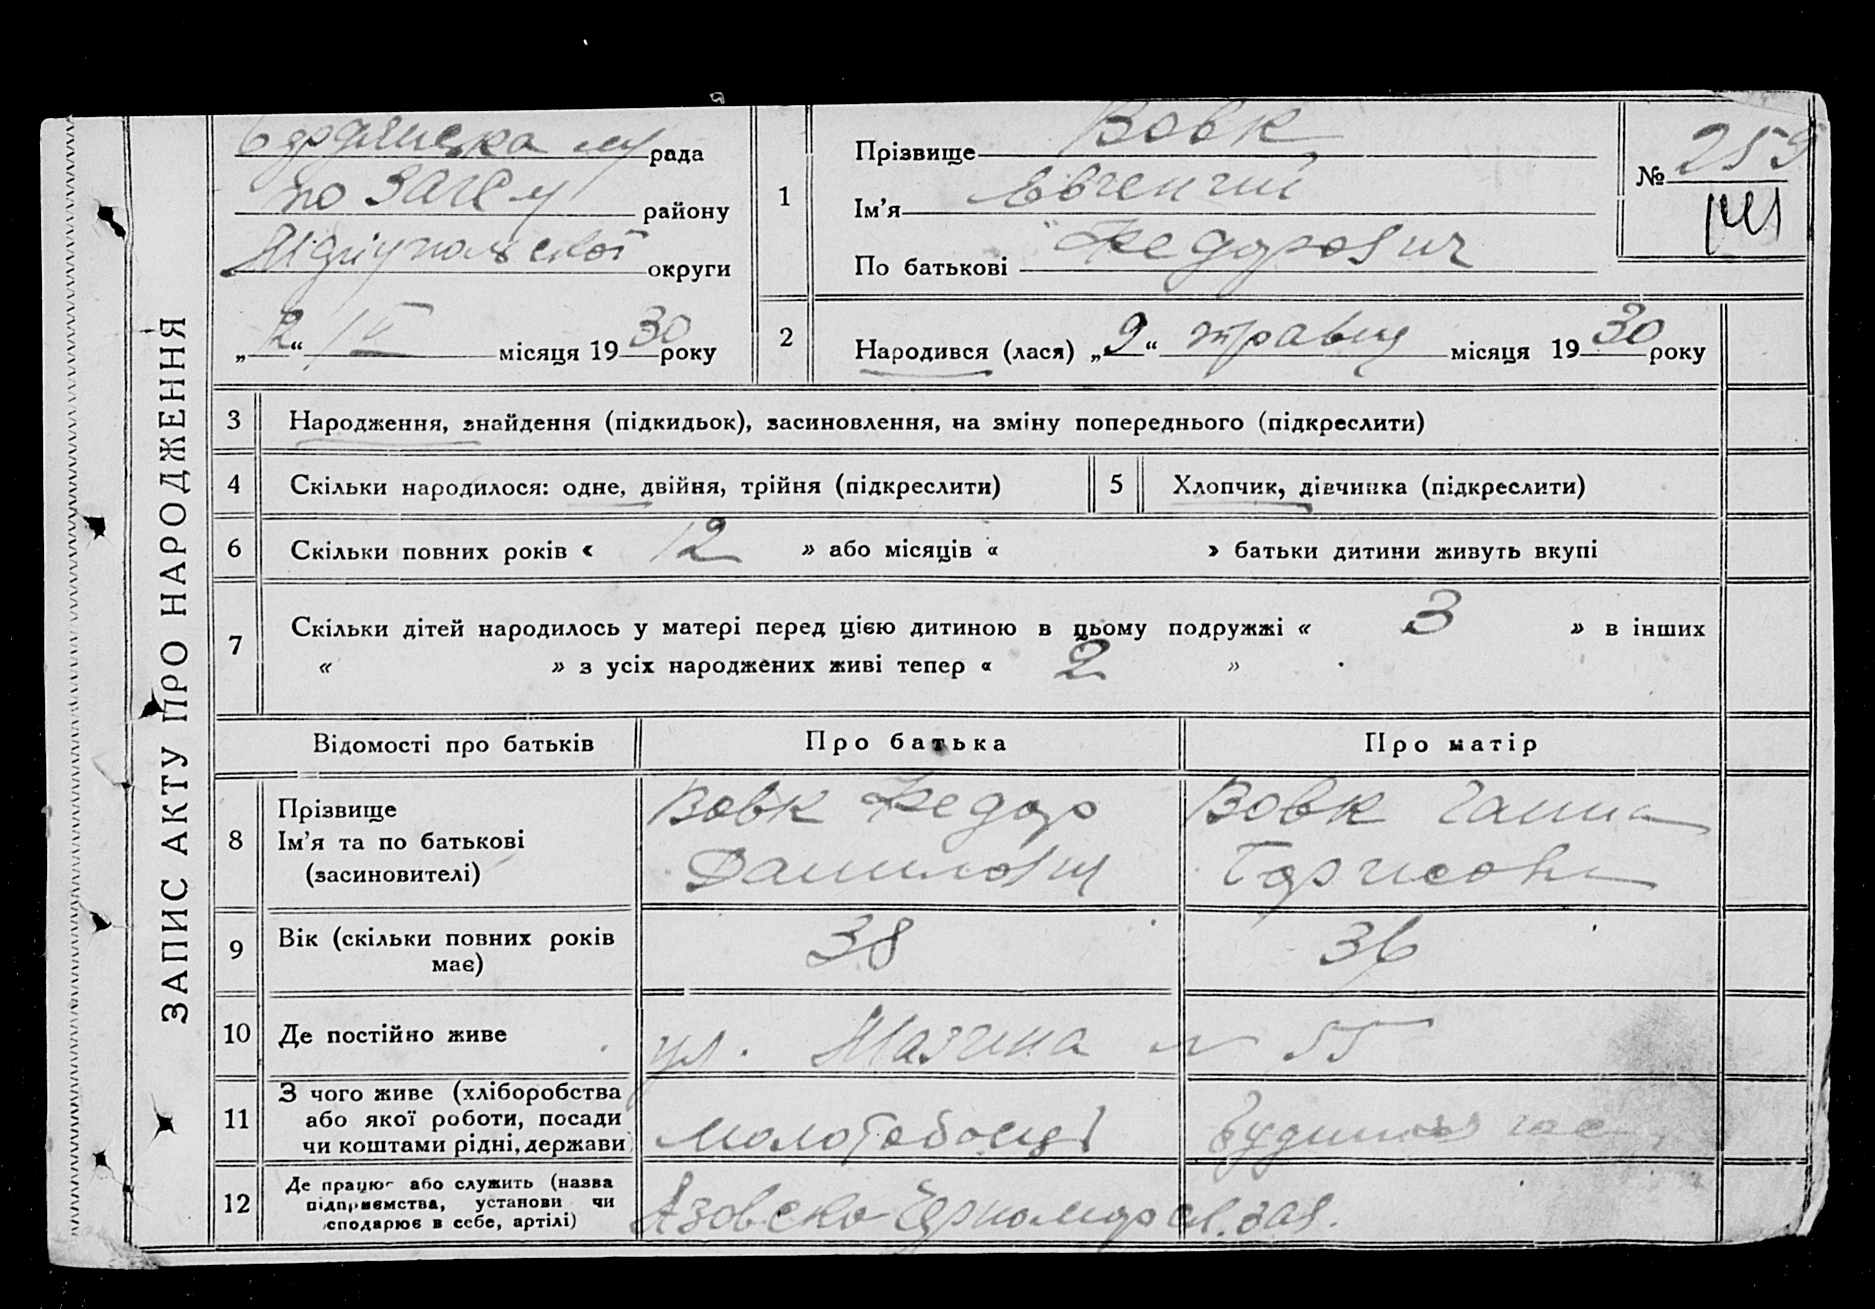 ЗАПИС АКТУ ПРО НАРОДЖЕННЯ
Бердянська м рада
по ЗАГСу району
Маріупольської округи
„12“ IV місяця 1930 року
1
Прізвище Вовк
Ім’я Євгеній
По батькові Федорович
№ 259
2
Народився (лася) „9“ травня місяця 1930 року
3 Народження, знайдення (підкидьок), засиновлення, на зміну попереднього (підкреслити)
4 Скільки народилося: одне, двійня, трійня (підкреслити)
5 Хлопчик, дівчинка (підкреслити)
6 Скільки повних років « 12 » або місяців « » батьки дитини живуть вкупі
7 Скільки дітей народилось у матері перед цією дитиною в цьому подружжі « 3 » в інших
« » з усіх народжених живі тепер « 2 »
Відомості про батьків Про батька Про матір
8 Прізвище
Ім’я та по батькові
(засиновителі)
Вовк Федор
Данилович
Вовк Ганна
Борисовна
9 Вік (скільки повних років
має)
38
36
10 Де постійно живе
ул. Мазина № 55
11 З чого живе (хліборобства
або якої роботи, посади
чи коштами рідні, держави
молотобоець
12 Де працює або служить (назва
підприємства, установи чи
сподарює в себе, артілі)
Азовско-Черноморск. зав.